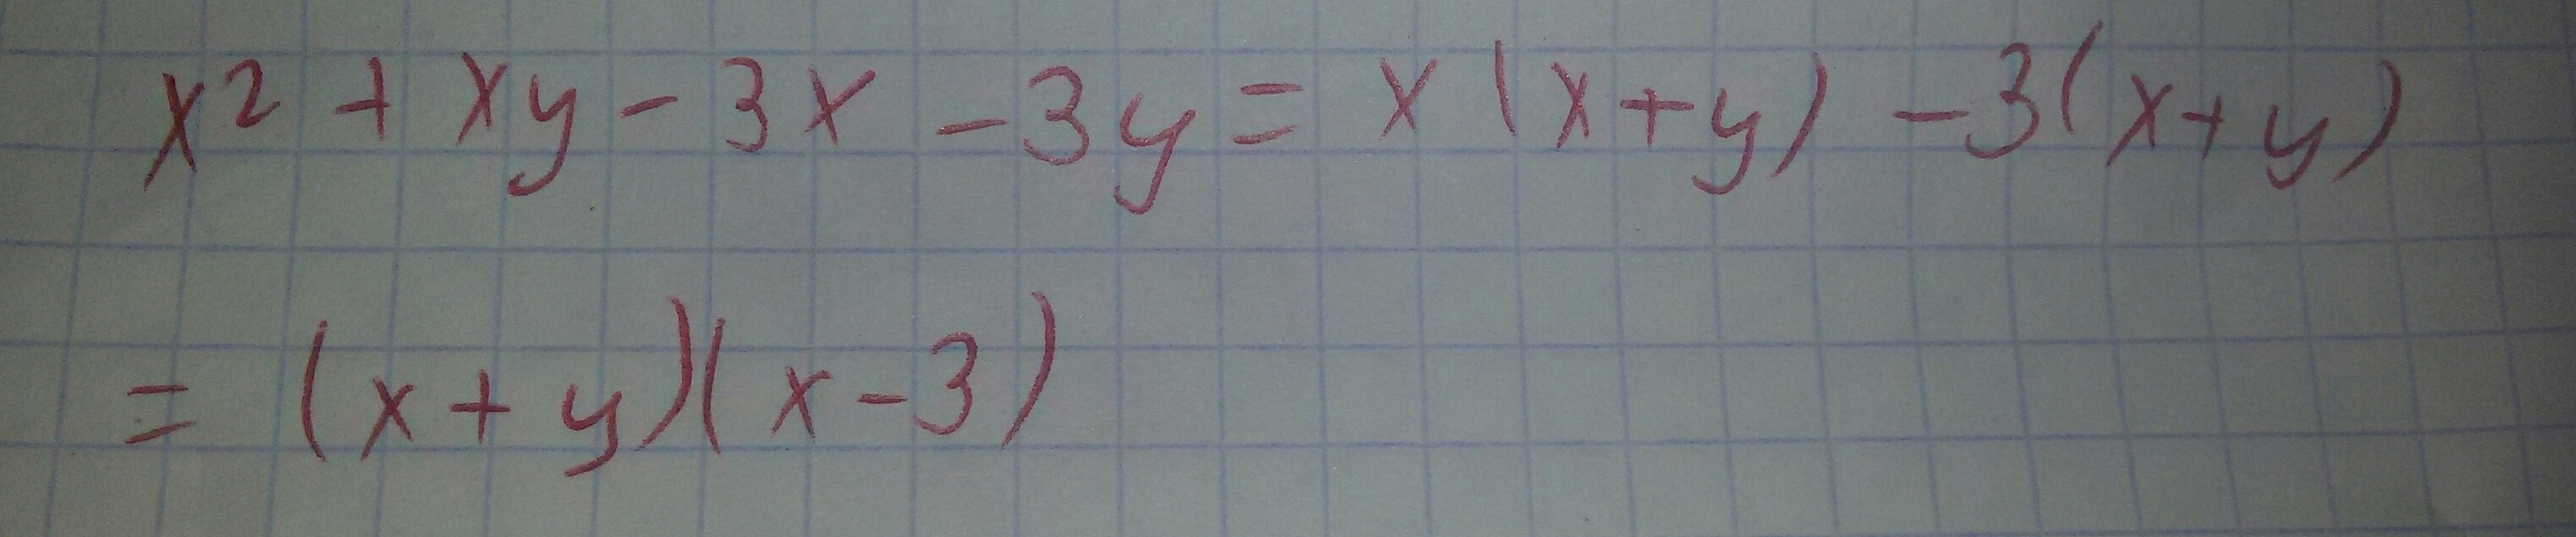 x² + xy - 3x - 3y = x(x+y) - 3(x+y)
= (x+y)(x-3)